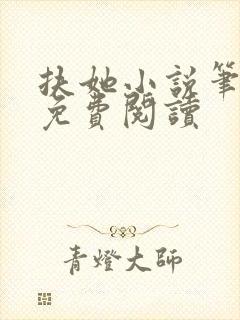 扶她小說筆
免費閱讀
青燈大師